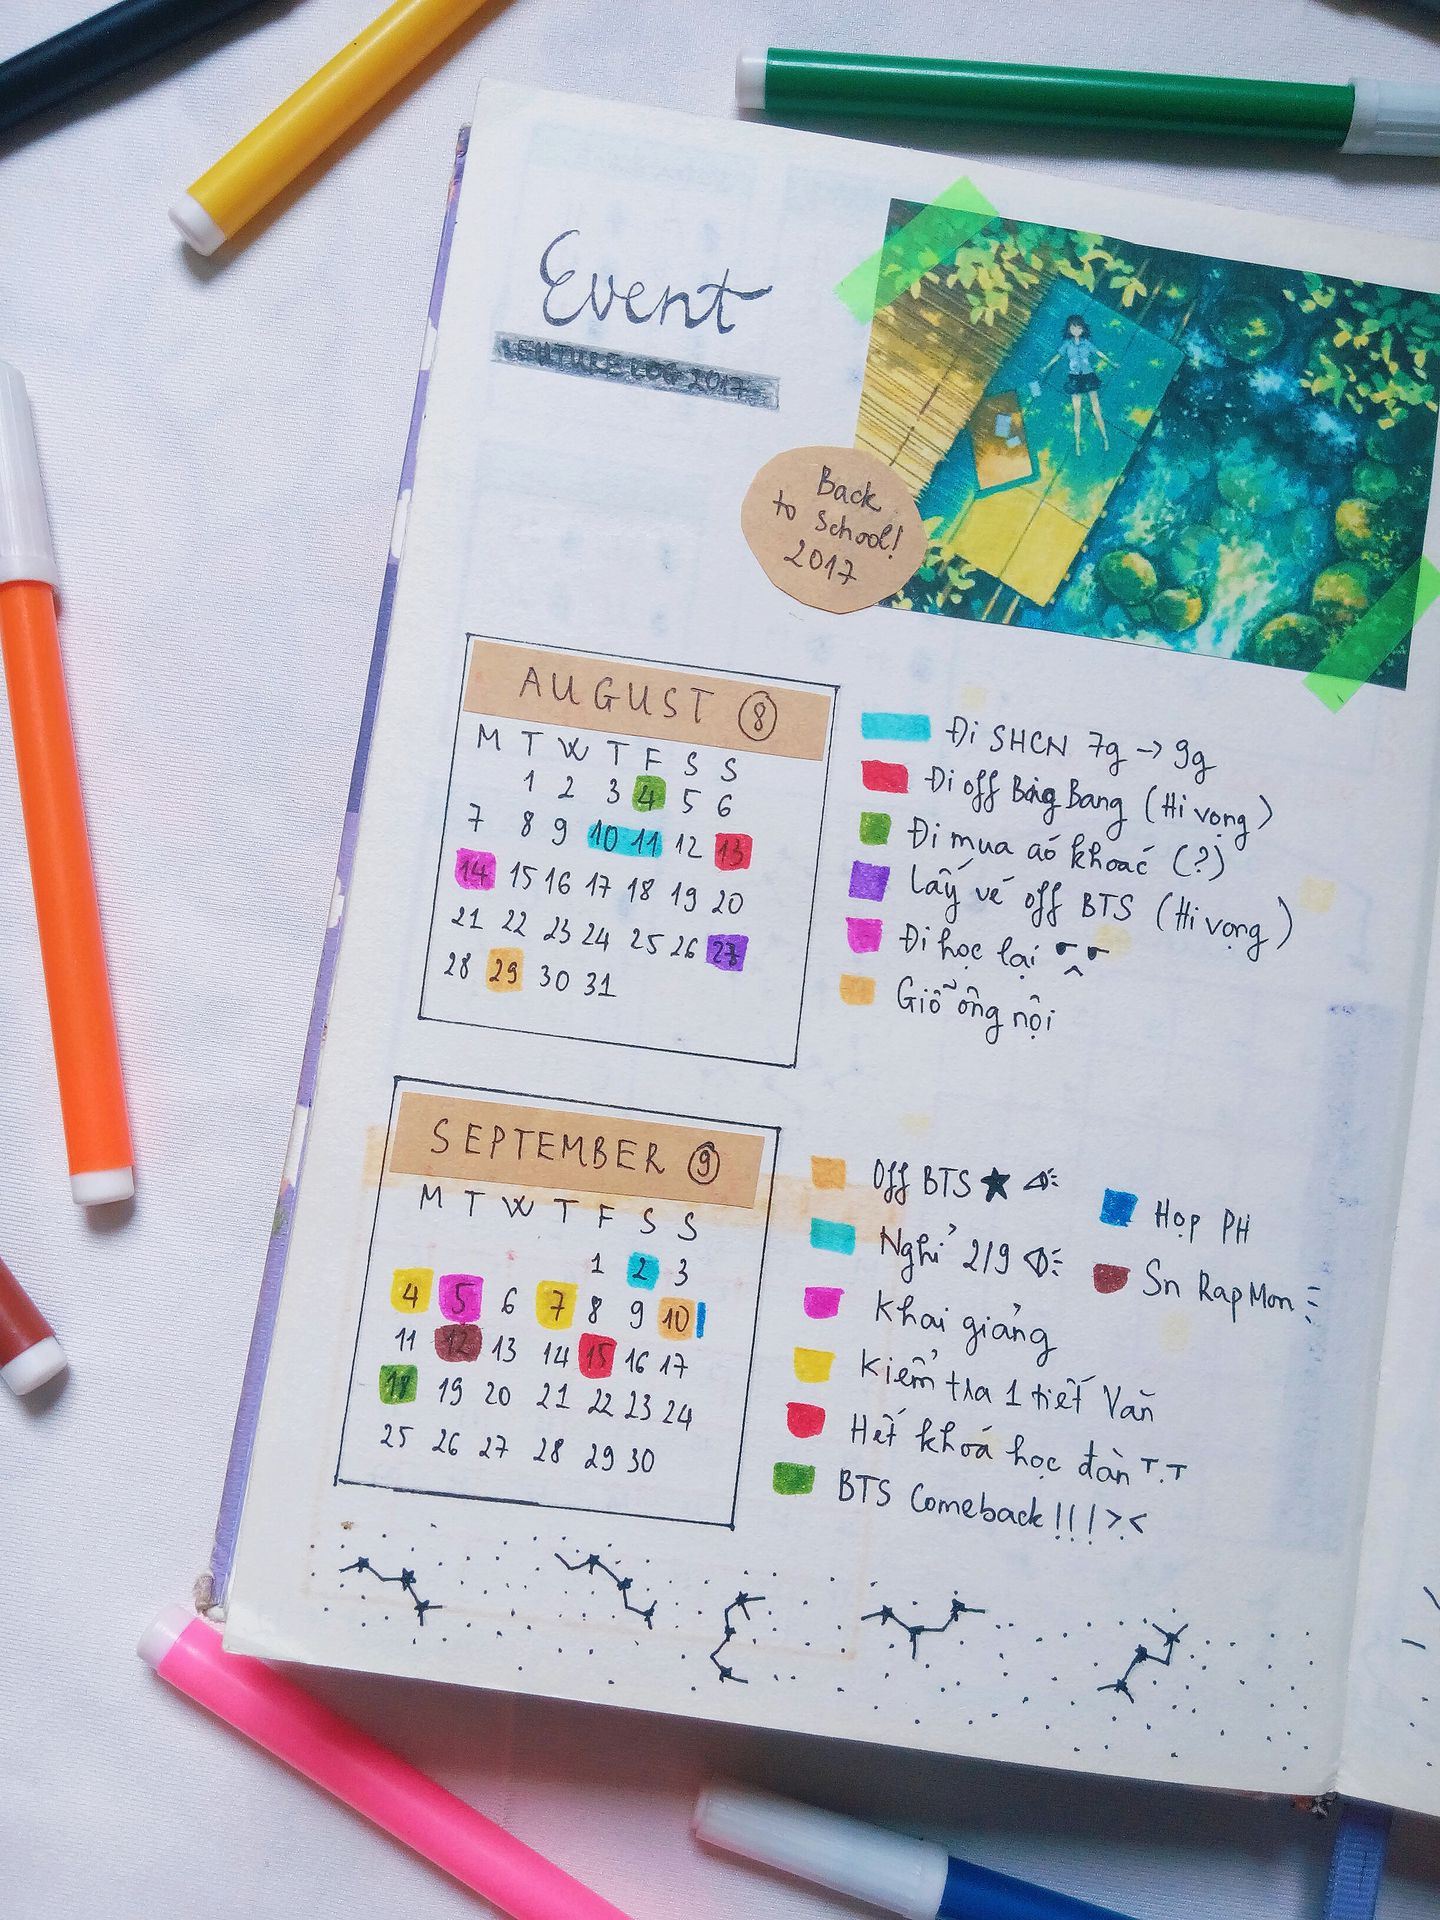 Event
FUTURE LOG 2017
Back
to School!
2017
AUGUST 8
M T W T F S S
1 2 3 4 5 6
7 8 9 10 11 12 13
14 15 16 17 18 19 20
21 22 23 24 25 26 27
28 29 30 31
Đi SHCN 7g → 9g
Đi off Big Bang (Hi vọng)
Đi mua áo khoác (?)
Lấy vé off BTS (Hi vọng)
Đi học lại
Giỗ ông nội
SEPTEMBER 9
M T W T F S S
1 2 3
4 5 6 7 8 9 10
11 12 13 14 15 16 17
18 19 20 21 22 23 24
25 26 27 28 29 30
Off BTS ★
Nghỉ 2/9
Khai giảng
Kiểm tra 1 tiết Văn
Hết khoá học đàn T.T
BTS Comeback!!! ><
Họp PH
Sn RapMon